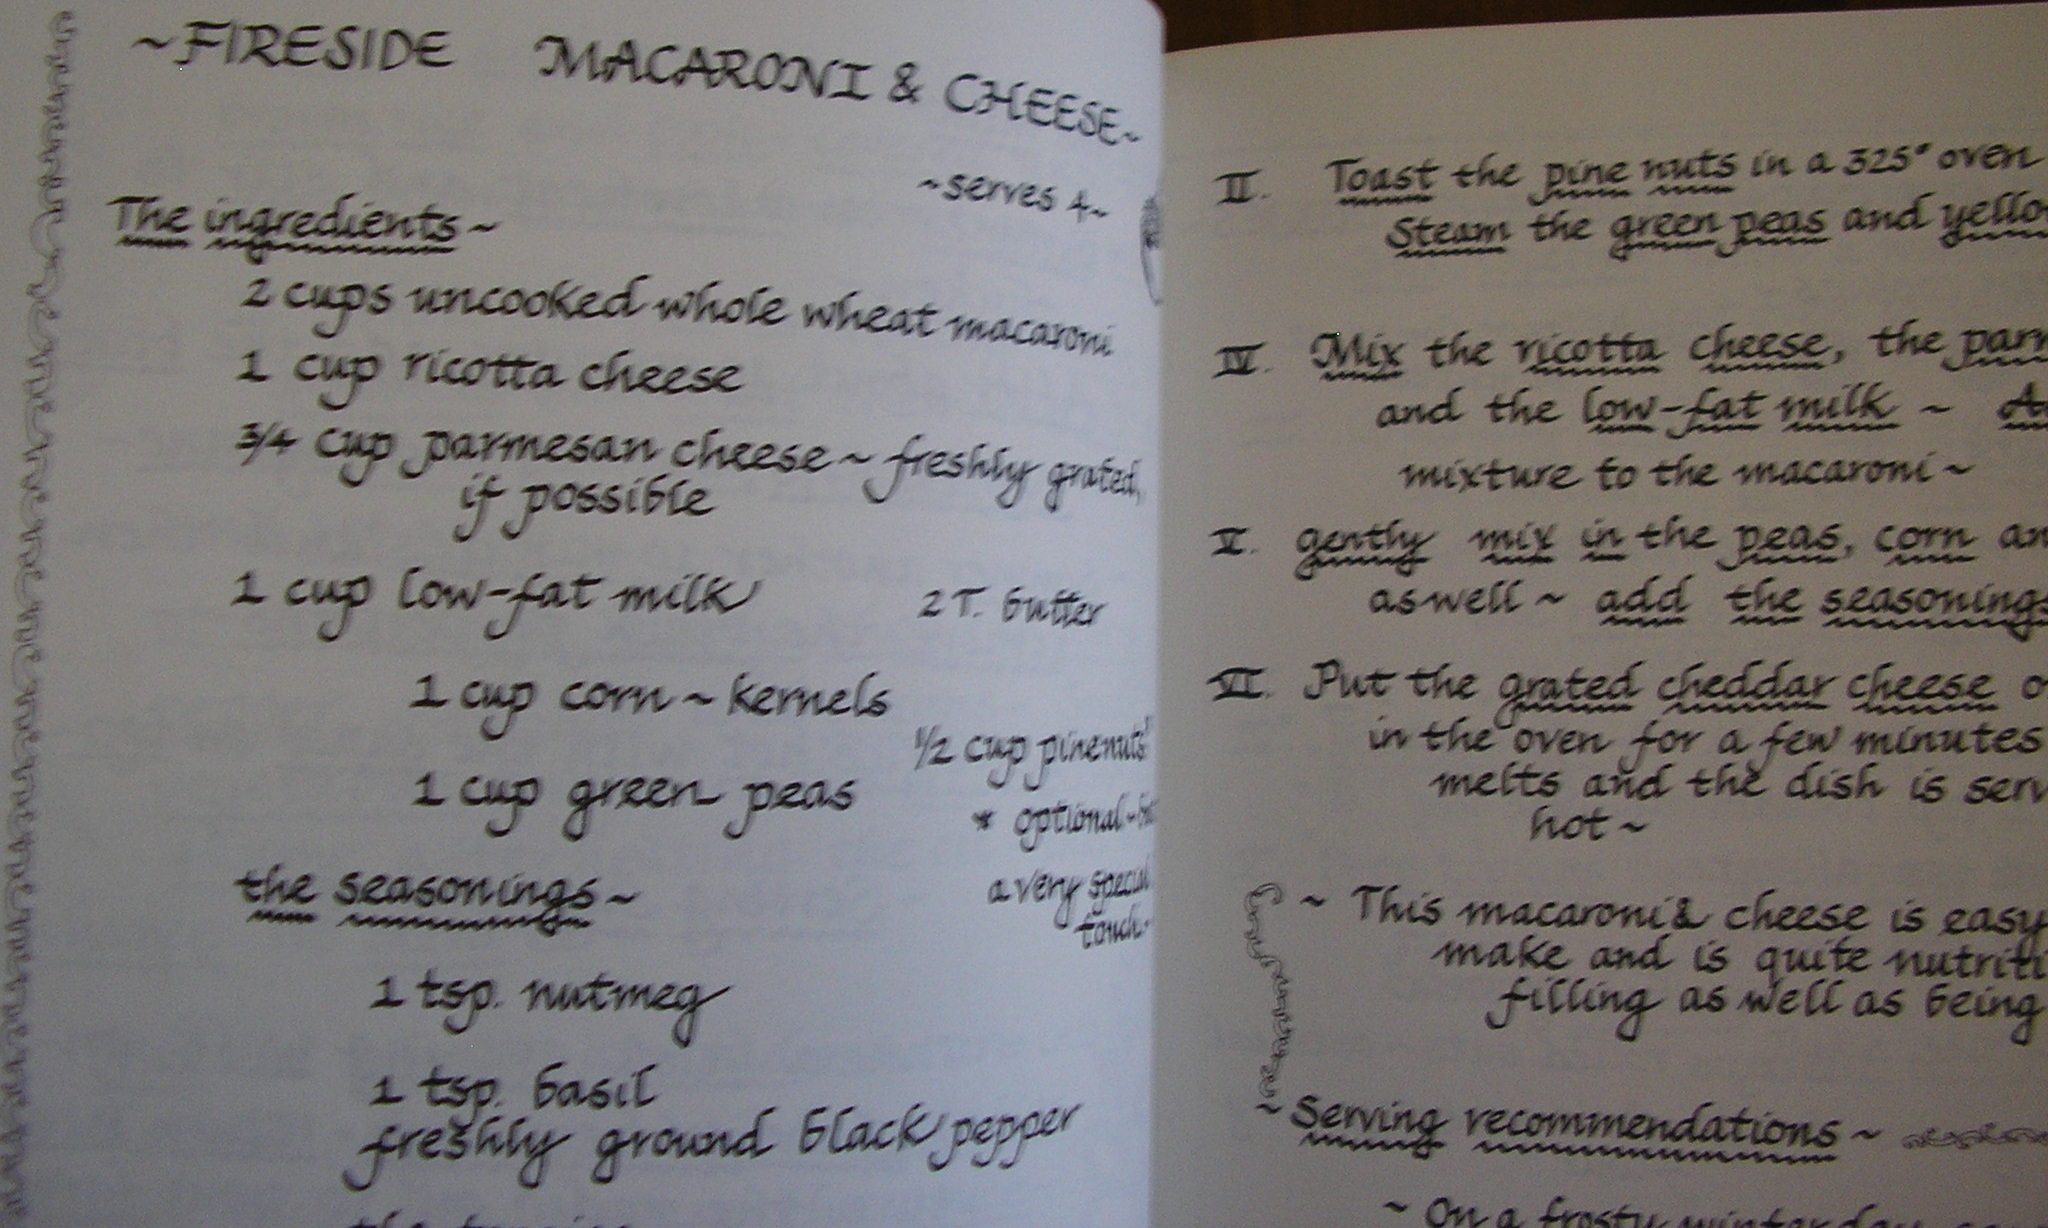 ~FIRESIDE MACARONI & CHEESE~
~serves 4~
The ingredients~
2 cups uncooked whole wheat macaroni
1 cup ricotta cheese
3/4 cup parmesan cheese ~ freshly grated,
if possible
1 cup low-fat milk
2 T. butter
1 cup corn ~ kernels
1/2 cup pinenuts
1 cup green peas
* optional ~
a very special
touch
the seasonings~
1 tsp. nutmeg
1 tsp. basil
freshly ground black pepper
II. Toast the pine nuts in a 325° oven
Steam the green peas and
IV. Mix the ricotta cheese, the
and the low-fat milk ~
mixture to the macaroni~
V. gently mix in the peas, corn
as well ~ add the seasonings
VI. Put the grated cheddar cheese
in the oven for a few minutes
melts and the dish is
hot~
~ This macaroni & cheese is easy
make and is quite
filling as well as being
~Serving recommendations~
~ On a frosty winter